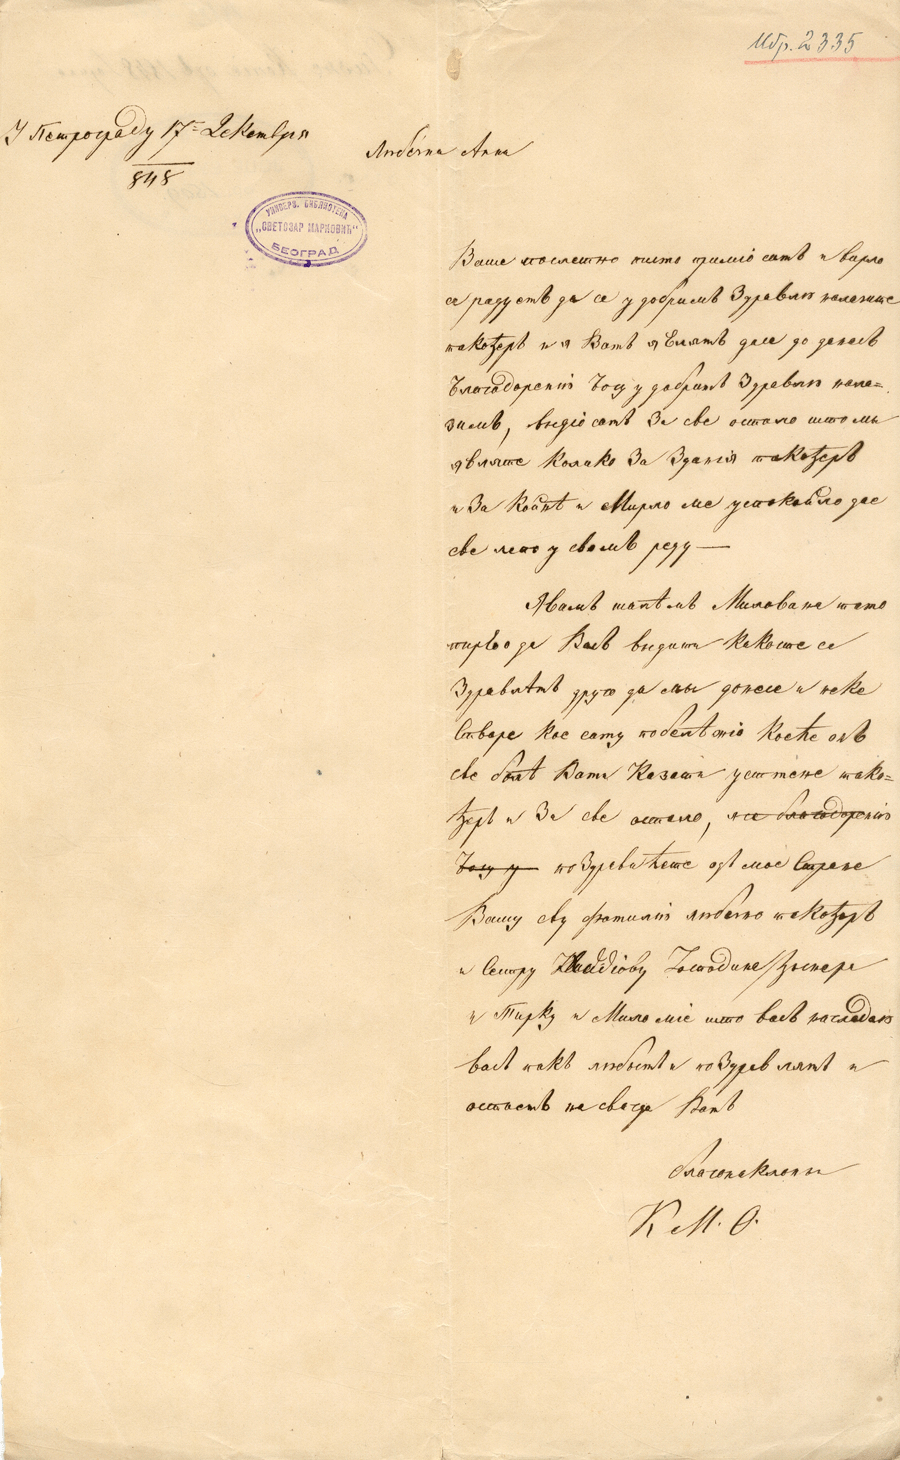 Ибр. 2335
У Петрограду 17. Декембра
848
Любезна Анна
УНИВЕРЗ. БИБЛИОТЕКА
„СВЕТОЗАР МАРКОВИЋ"
БЕОГРАД
Ваше последно писмо примiо самъ и варло
се радуемъ да се у добримъ Здравлю налазите
такођеръ и я Вамъ являмъ дасе до данасъ
благодаренiю Богу у добримъ Здравлю нала=
зимъ, видiо самъ За све остало што ми
являте колико За Зданiя такођеръ
и За Конѣ и Мирло ме успокоило дае
све лепо у свомъ реду —
Я вамъ шалѣмъ Милована како
первo да Васъ види како сте са
Здравлѣмъ друго да мы донесе и неке
Стваре кое саму побелѣжiо коеће онъ
све Вами Казати усмене тако=
ђеръ и За све остало, я се благодаренiю
Богу у поЗдравићете одъ мое Стране
Вашу сву фамилiю любезно такођеръ
и Сестру Господина
и Пирку и Милосаме што васъ
васъ любезни поЗдравлямъ и
остаемъ на свагда Вамъ
благонаклони
К М. О.